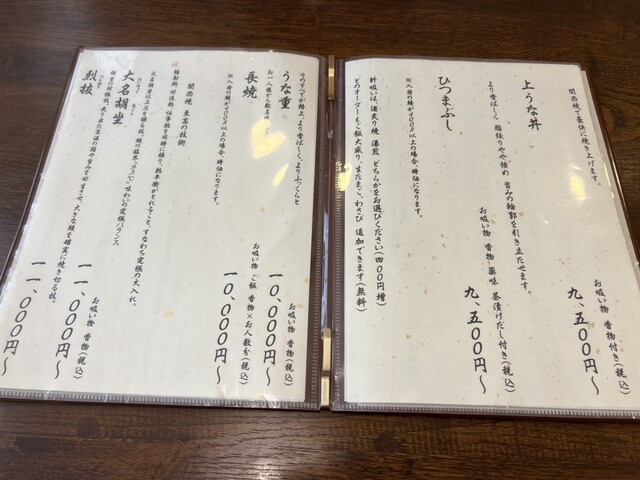 関西焼で最後に焼き上げます。
上うな丼
より香ばしく 脂張りやや強め 旨みの輪郭を引き立たせます。
お吸い物 香物付き(税込)
九、五〇〇円〜
ひつまぶし
お吸い物 香物 薬味 茶漬けだし付き(税込)
九、五〇〇円〜
※入荷の鰻が400g以上の場合、時価になります。
肝吸いは、酒炙り焼 湯煎 どちらかをお選びください(四〇〇円増)
どのオーダーもご飯大盛り、生たまご、わさび 追加できます(無料)
そのすべてが格上、より香ばしく、よりふっくらと
うな重
お吸い物 香物(税込)
一〇、〇〇〇円〜
長焼
お一人様から数名様
お吸い物 ご飯 香物×お人数分(税込)
一〇、〇〇〇円〜
※入荷の鰻が400g以上の場合、時価になります。
関西焼 至高の技術
大名胡坐
お吸い物 香物(税込)
一一、〇〇〇円〜
烈抜
お吸い物 香物(税込)
一一、〇〇〇円〜